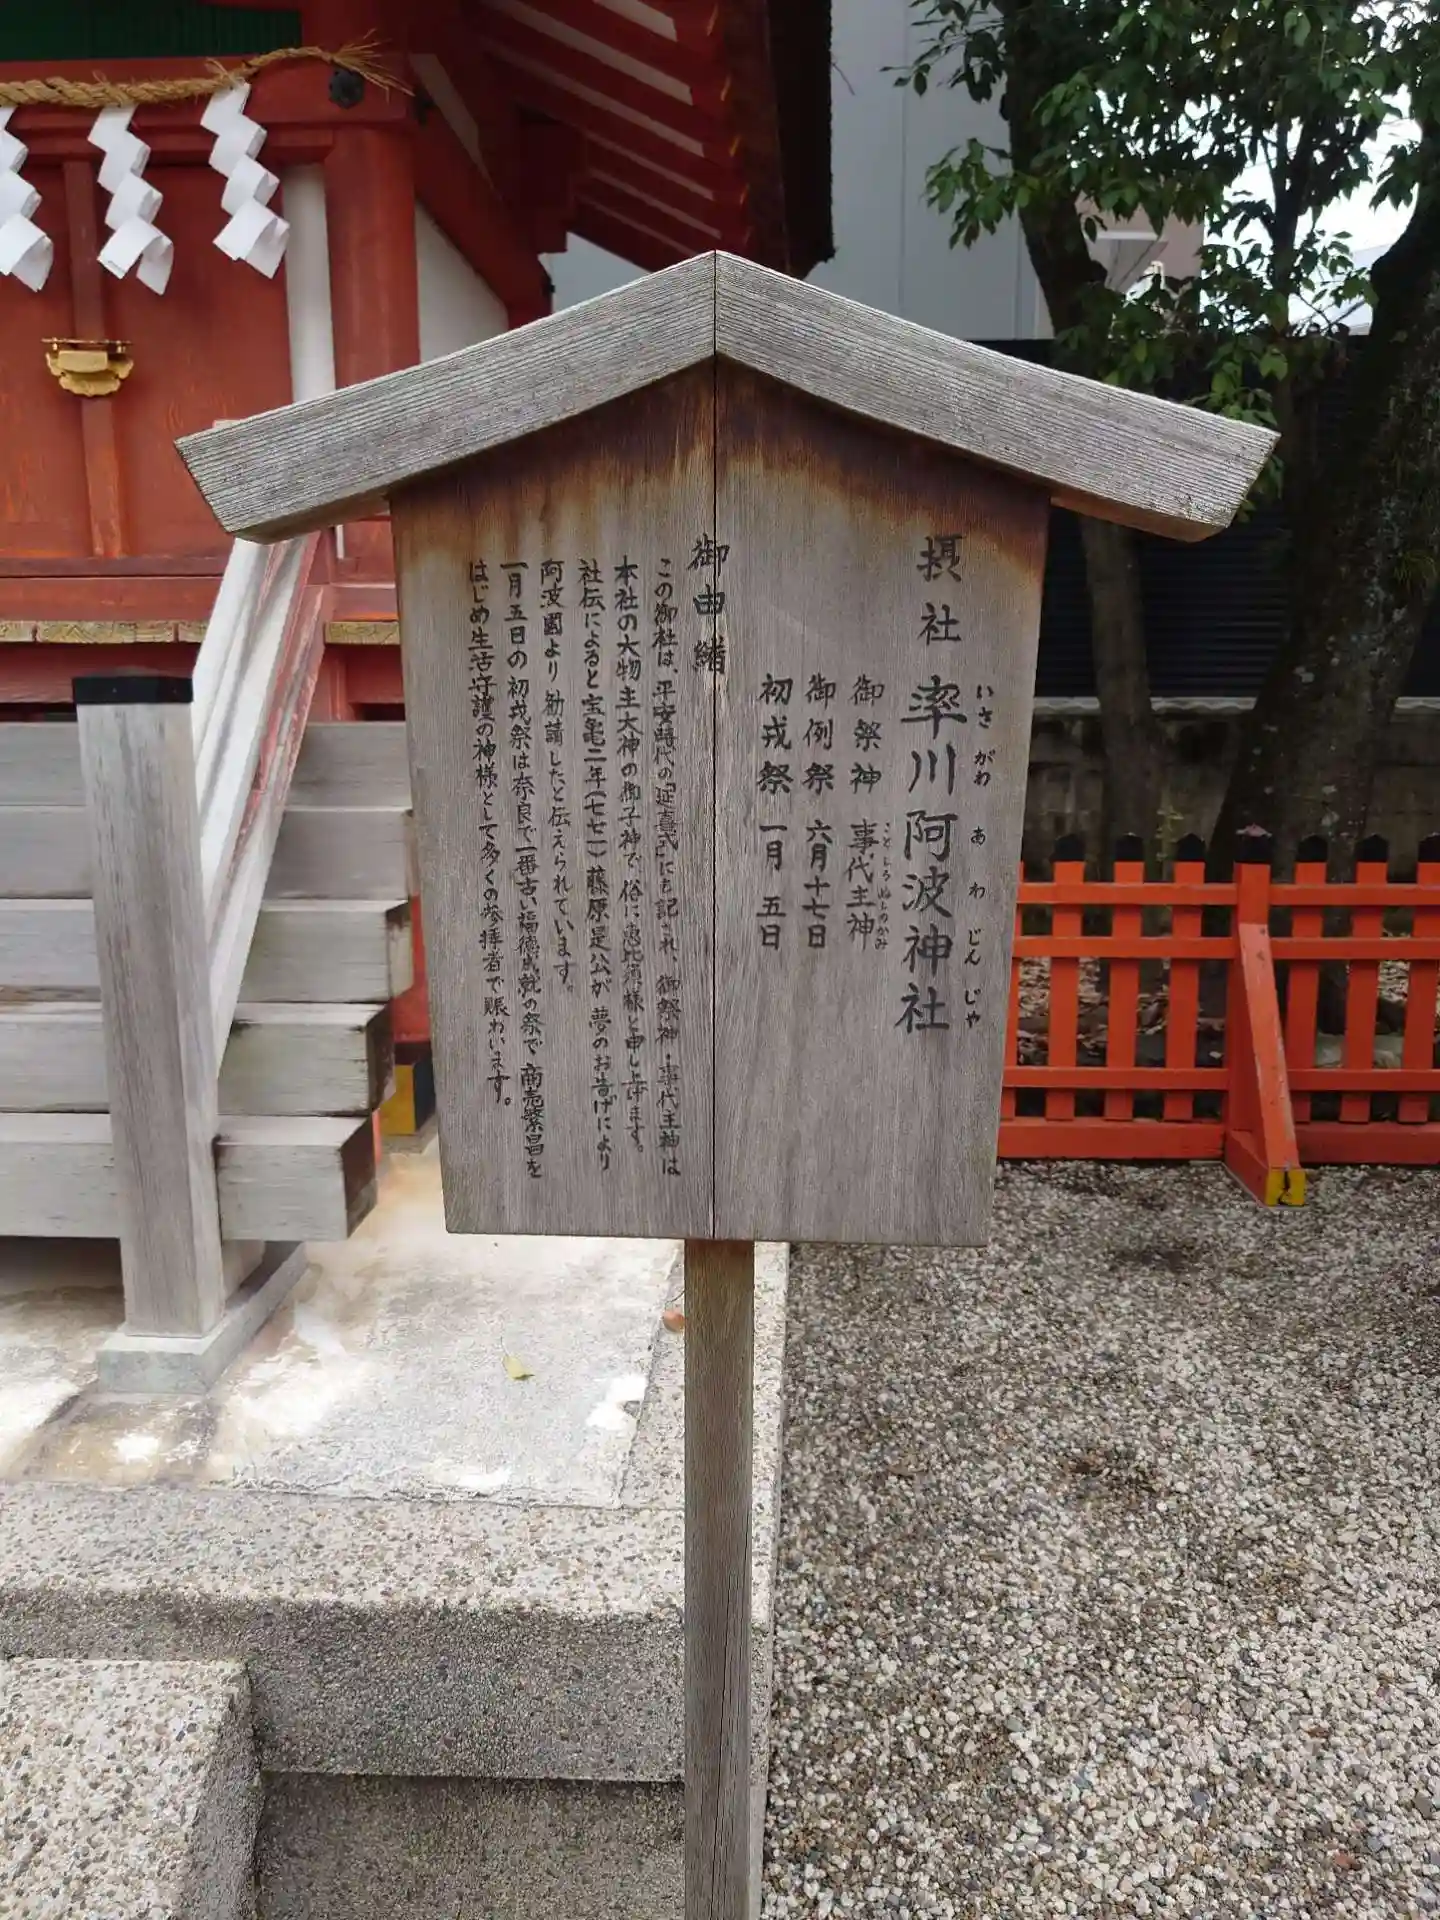 摂社 率川阿波神社
いさがわあわじんじゃ
御祭神 事代主神
ことしろぬしのかみ
御例祭 六月十七日
初戎祭 一月五日
御由緒
この御社は、平安時代の「延喜式」にも記され、御祭神・事代主神は
本社の大物主大神の御子神で、俗に恵比須様と申し上げます。
社伝によると宝亀二年(七七一)藤原是公が夢のお告げにより
阿波國より勧請したと伝えられています。
一月五日の初戎祭は奈良で一番古い福徳成就の祭で、商売繁昌を
はじめ生活守護の神様として多くの参拝者で賑わいます。